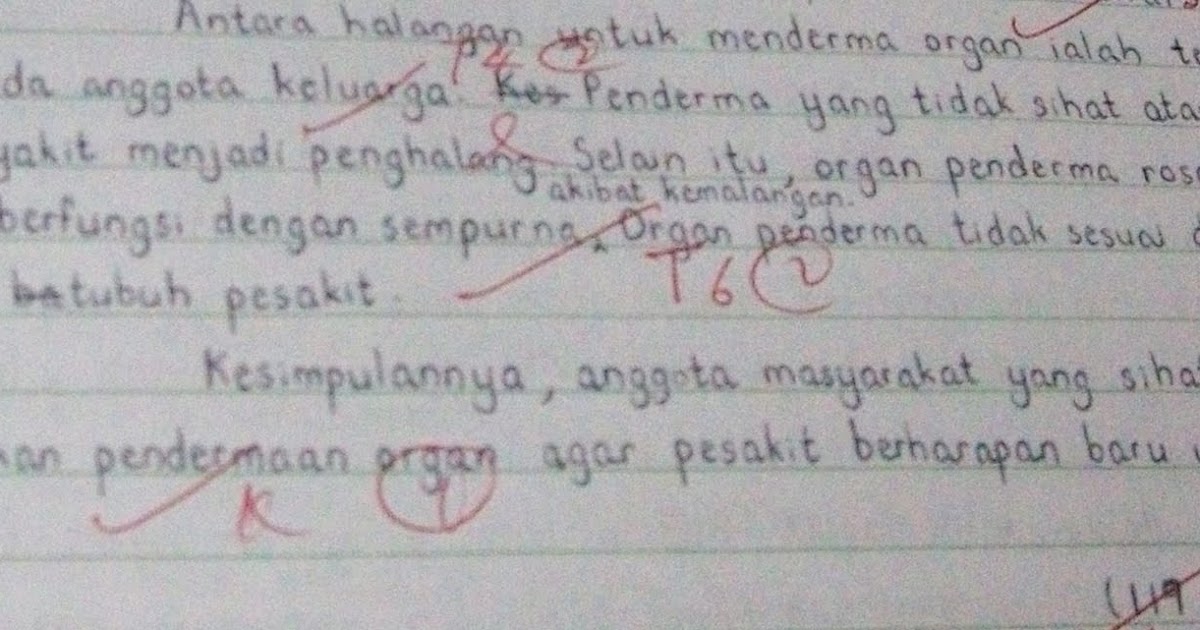 Antara halangan untuk menderma organ ialah
P4 2
da anggota keluarga. Penderma yang tidak sihat ata
yakit menjadi penghalang. Selain itu, organ penderma ros
akibat kemalangan.
berfungsi dengan sempurna. Organ penderma tidak sesuai
T6 2
tubuh pesakit.
Kesimpulannya, anggota masyarakat yang siha
an pendermaan organ agar pesakit berharapan baru
K 1
(119